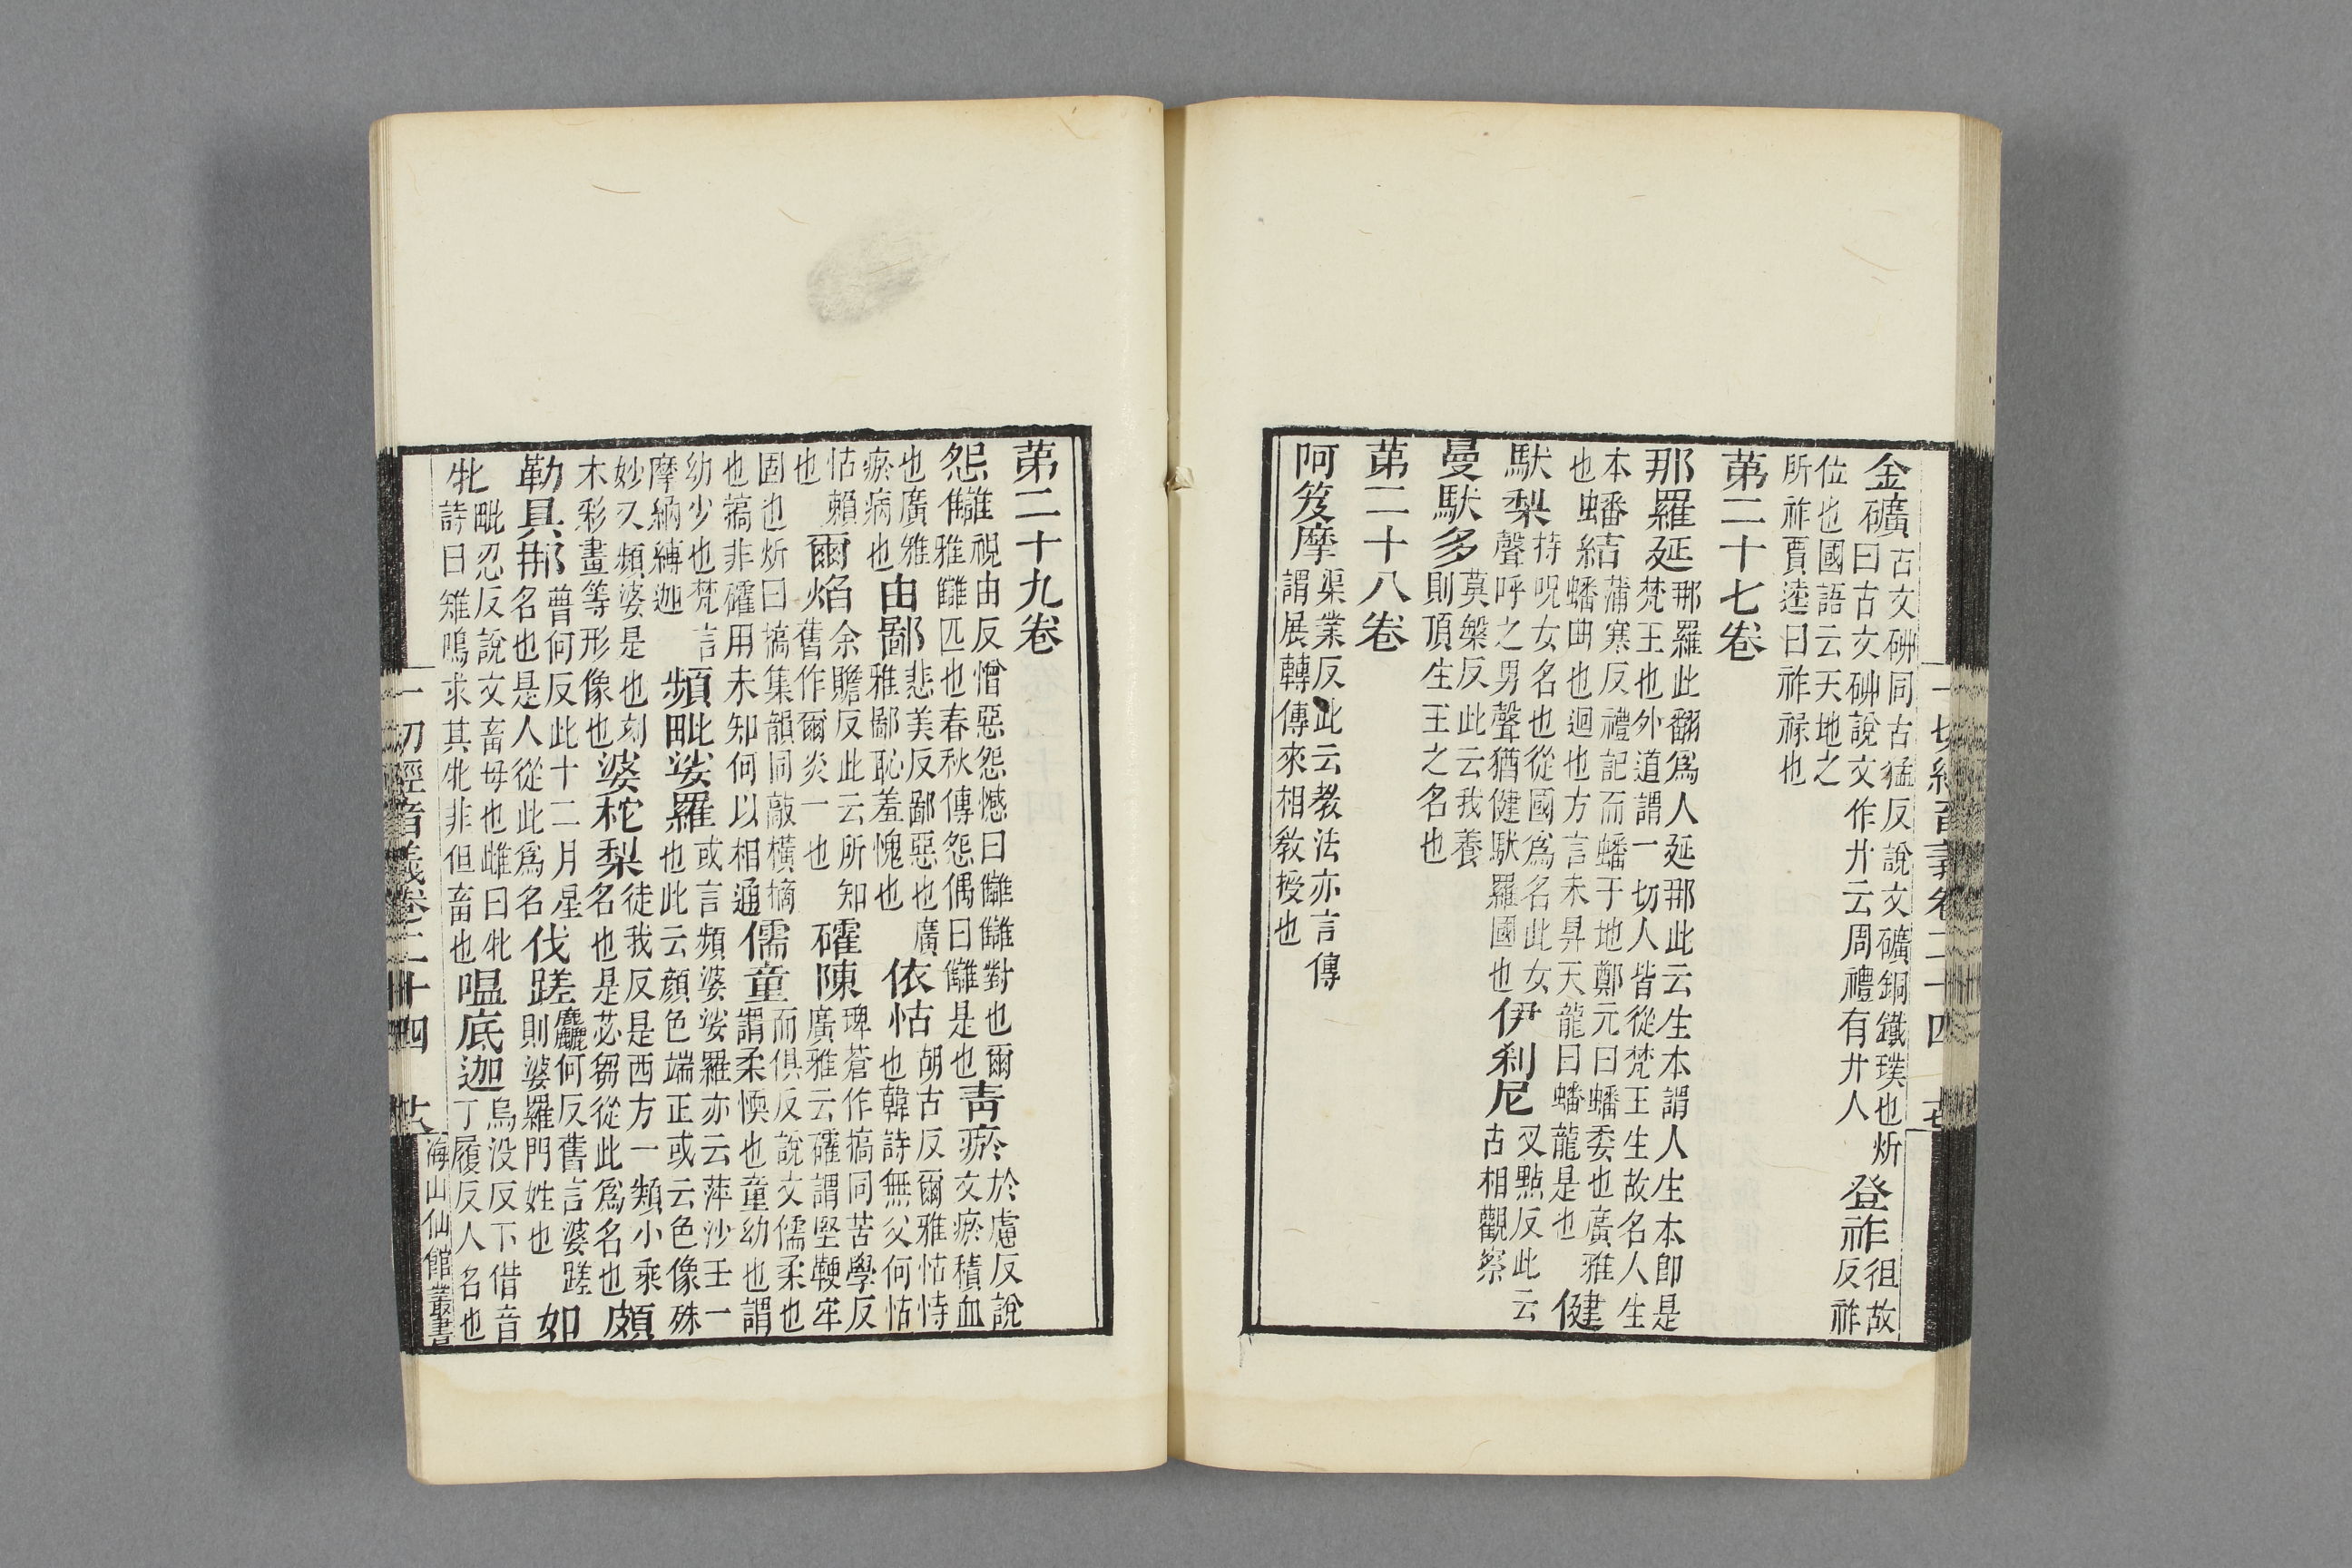 金礦古文硑同古猛反說文礦銅鐵璞也炘
曰古文砷說文作廾云周禮有廾人登祚徂故反祚
位也國語云天地之
所祚賈逵曰祚祿也
第二十七卷
那羅延那羅此翻爲人延那此云生本謂人生本卽是
梵王也外道謂一切人皆從梵王生故名人生
本蟠結蒲寒反禮記而蟠于地鄭元曰蟠委也廣雅
也蟠曲也迴也方言未昇天龍曰蟠龍是也健
馱梨持呪女名也從國爲名此女
聲呼之男聲猶健馱羅國也伊刹尼叉點反此云
占相觀察
曼馱多莫槃反此云我養
則頂生王之名也
第二十八卷
阿笈摩渠業反此云教法亦言傳
謂展轉傳來相教授也
一切經音義卷二十四
第二十九卷
怨讎視由反憎惡怨憾曰讎讎對也爾
雅讎匹也春秋傳怨偶曰讎是也青瘀於慮反說
文瘀積血
也廣雅
瘀病也由鄙悲美反鄙惡也廣
雅鄙恥羞愧也依怙胡古反爾雅怙恃
也韓詩無父何怙
怙賴
也爾焰余贍反此云所知
舊作爾炎一也礭陳琕蒼作搞同苦學反
廣雅云礭謂堅鞕牢
固也炘曰搞集韻同敲橫擿
也搞非礭用未知何以相通儒童而俱反說文儒柔也
謂柔愞也童幼也謂
幼少也梵言
摩納縛迦頻毗娑羅或言頻婆娑羅亦云萍沙王一
也此云顏色端正或云色像殊
妙又頻婆是也刻
木彩畫等形像也婆柁梨徒我反是西方一類小乘
名也是苾芻從此爲名也頗
勒具那曾何反此十二月星
名也是人從此爲名伐蹉麤何反舊言婆蹉
則婆羅門姓也如
牝毗忍反說文畜母也雌曰牝
詩曰雉鳴求其牝非但畜也嗢底迦烏没反下偕音
丁履反人名也
一切經音義卷二十四
海山仙館叢書